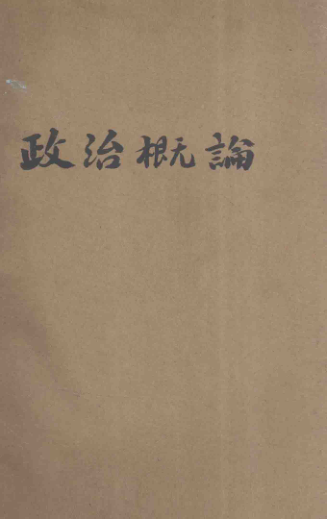 政治概論